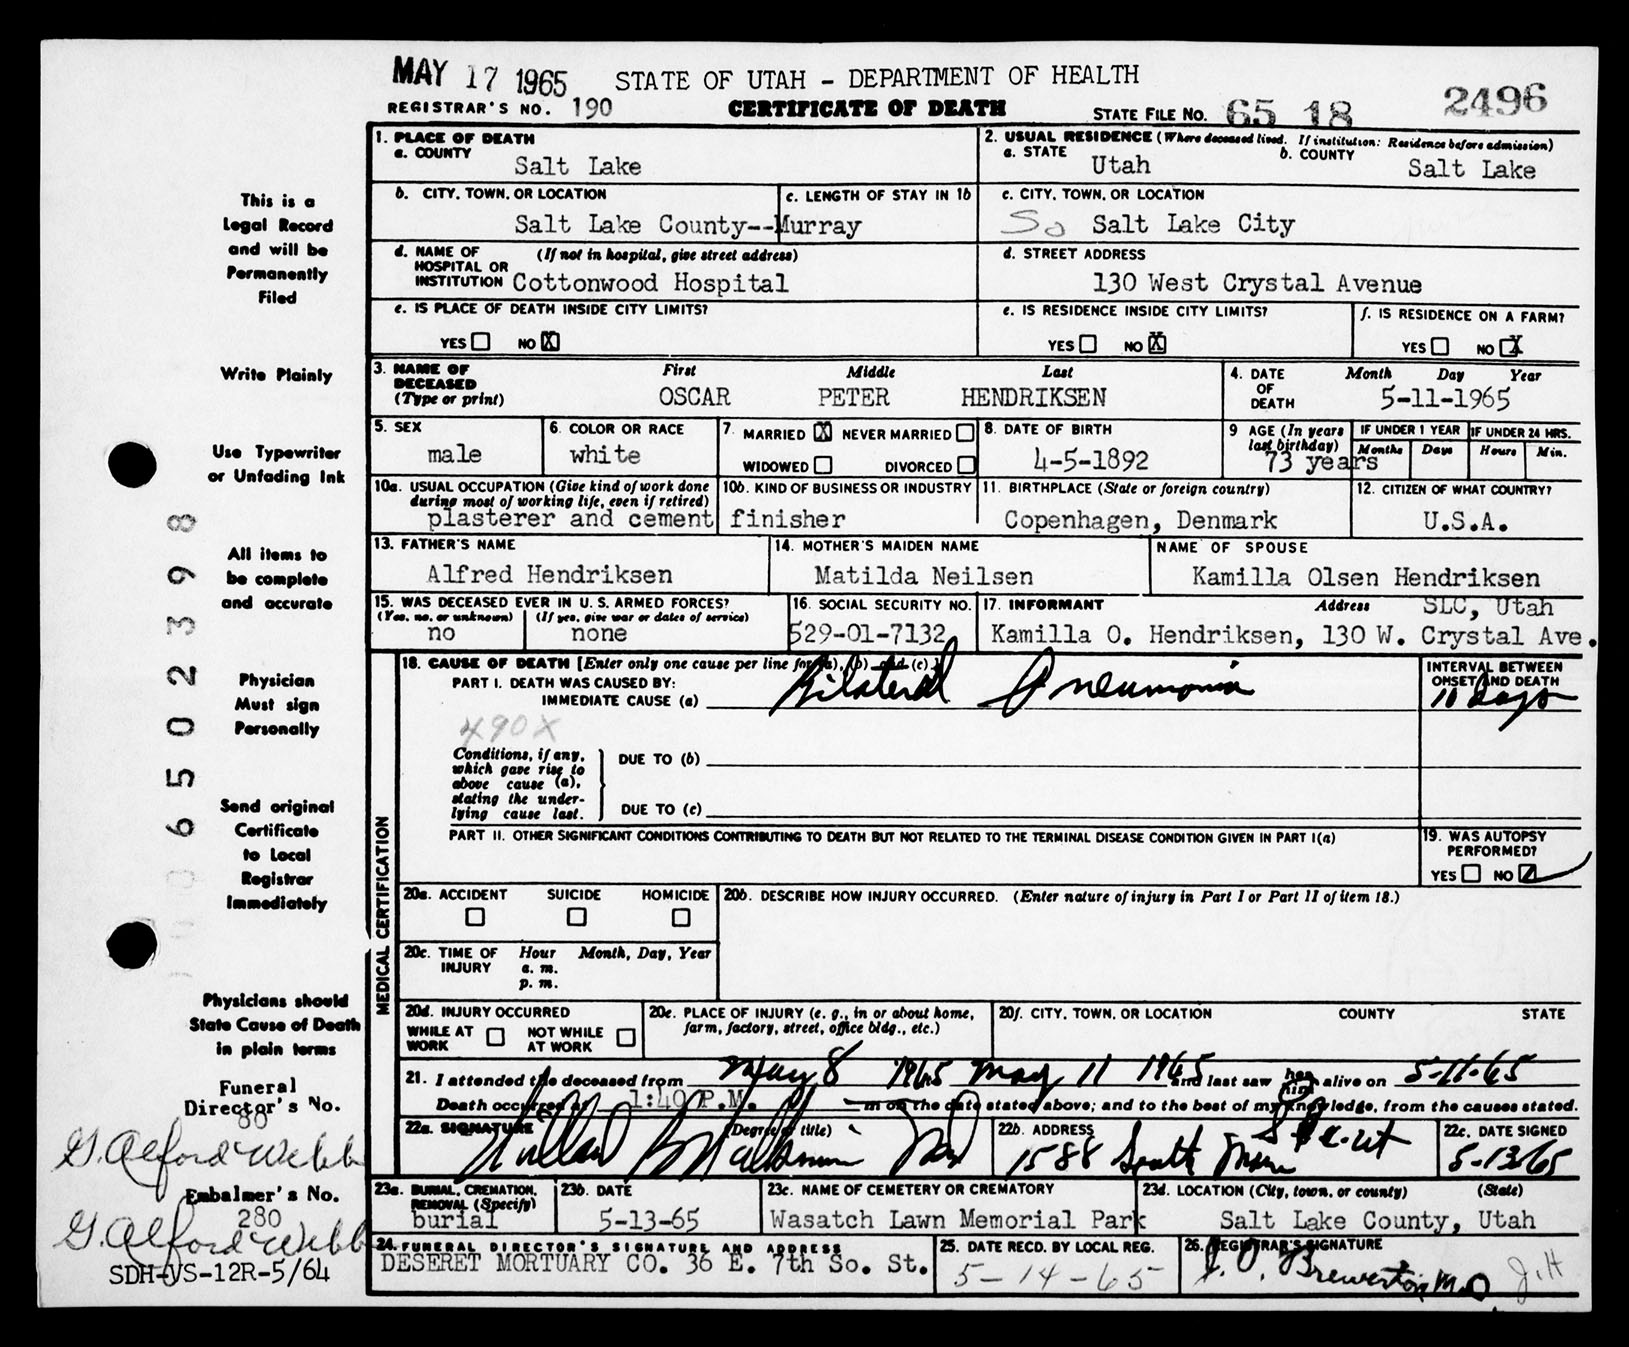 MAY 17 1965 STATE OF UTAH - DEPARTMENT OF HEALTH
REGISTRAR'S NO. 190 CERTIFICATE OF DEATH STATE FILE NO. 65 18 2496
1. PLACE OF DEATH
a. COUNTY Salt Lake
2. USUAL RESIDENCE (Where deceased lived. If institution: Residence before admission)
a. STATE Utah b. COUNTY Salt Lake
b. CITY, TOWN, OR LOCATION c. LENGTH OF STAY IN 1b
Salt Lake County--Murray
c. CITY, TOWN, OR LOCATION
So Salt Lake City
d. NAME OF HOSPITAL OR INSTITUTION (If not in hospital, give street address)
Cottonwood Hospital
d. STREET ADDRESS
130 West Crystal Avenue
e. IS PLACE OF DEATH INSIDE CITY LIMITS?
YES NO X
e. IS RESIDENCE INSIDE CITY LIMITS?
YES NO X
f. IS RESIDENCE ON A FARM?
YES NO X
3. NAME OF DECEASED (Type or print) First Middle Last
OSCAR PETER HENDRIKSEN
4. DATE OF DEATH Month Day Year
5-11-1965
5. SEX
male
6. COLOR OR RACE
white
7. MARRIED X NEVER MARRIED
WIDOWED DIVORCED
8. DATE OF BIRTH
4-5-1892
9 AGE (In years last birthday)
73 years
IF UNDER 1 YEAR
Months Days
IF UNDER 24 HRS.
Hours Min.
10a. USUAL OCCUPATION (Give kind of work done during most of working life, even if retired)
plasterer and cement
10b. KIND OF BUSINESS OR INDUSTRY
finisher
11. BIRTHPLACE (State or foreign country)
Copenhagen, Denmark
12. CITIZEN OF WHAT COUNTRY?
U.S.A.
13. FATHER'S NAME
Alfred Hendriksen
14. MOTHER'S MAIDEN NAME
Matilda Neilsen
NAME OF SPOUSE
Kamilla Olsen Hendriksen
15. WAS DECEASED EVER IN U. S. ARMED FORCES?
(Yes, no, or unknown) (If yes, give war or dates of service)
no none
16. SOCIAL SECURITY NO.
529-01-7132
17. INFORMANT Address SLC, Utah
Kamilla O. Hendriksen, 130 W. Crystal Ave.
MEDICAL CERTIFICATION
18. CAUSE OF DEATH [Enter only one cause per line for (a), (b) and (c).]
PART I. DEATH WAS CAUSED BY:
IMMEDIATE CAUSE (a) Bilateral Pneumonia
INTERVAL BETWEEN ONSET AND DEATH
10 days
490X
Conditions, if any, which gave rise to above cause (a), stating the underlying cause last.
DUE TO (b)
DUE TO (c)
PART II. OTHER SIGNIFICANT CONDITIONS CONTRIBUTING TO DEATH BUT NOT RELATED TO THE TERMINAL DISEASE CONDITION GIVEN IN PART I(a)
19. WAS AUTOPSY PERFORMED?
YES NO
20a. ACCIDENT SUICIDE HOMICIDE
20b. DESCRIBE HOW INJURY OCCURRED. (Enter nature of injury in Part I or Part II of item 18.)
20c. TIME OF INJURY Hour Month, Day, Year
a. m.
p. m.
20d. INJURY OCCURRED
WHILE AT WORK NOT WHILE AT WORK
20e. PLACE OF INJURY (e. g., in or about home, farm, factory, street, office bldg., etc.)
20f. CITY, TOWN, OR LOCATION COUNTY STATE
21. I attended the deceased from May 8 1965 May 11 1965 and last saw her him alive on 5-11-65
Death occurred at 1:40 P.M. m on the date stated above; and to the best of my knowledge, from the causes stated.
22a. SIGNATURE (Degree or title)
22b. ADDRESS
1588 South Main
22c. DATE SIGNED
5-13-65
23a. BURIAL, CREMATION, REMOVAL (Specify)
burial
23b. DATE
5-13-65
23c. NAME OF CEMETERY OR CREMATORY
Wasatch Lawn Memorial Park
23d. LOCATION (City, town, or county) (State)
Salt Lake County, Utah
24. FUNERAL DIRECTOR'S SIGNATURE AND ADDRESS
DESERET MORTUARY CO. 36 E. 7th So. St.
25. DATE RECD. BY LOCAL REG.
5-14-65
26. REGISTRAR'S SIGNATURE
Brewerton M.D J.H
This is a
Legal Record
and will be
Permanently
Filed
Write Plainly
Use Typewriter
or Unfading Ink
All items to
be complete
and accurate
Physician
Must sign
Personally
Send original
Certificate
to Local
Registrar
Immediately
Physicians should
State Cause of Death
in plain terms
Funeral
Director's No.
80
G. Alford Webb
Embalmer's No.
280
G. Alford Webb
SDH-VS-12R-5/64
06502398